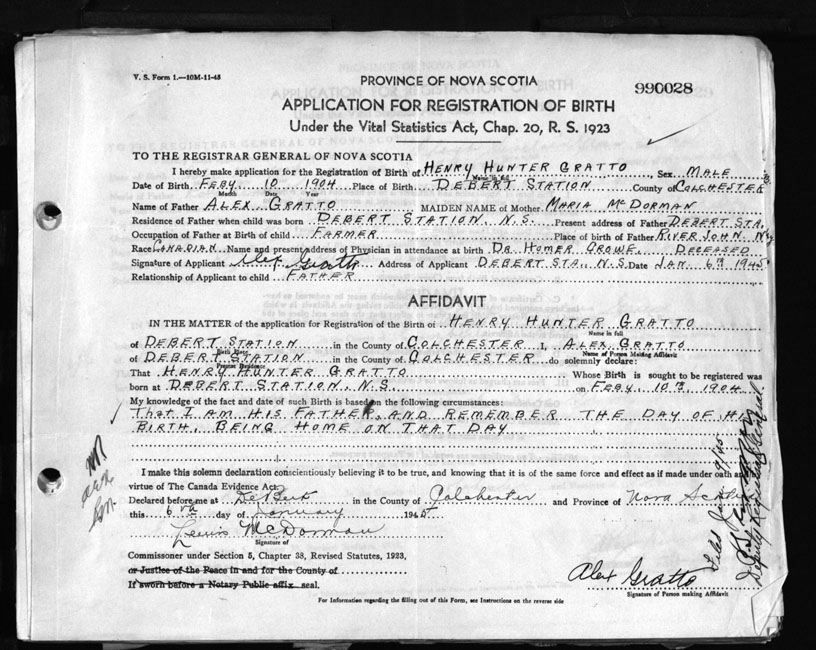 V. S. Form 1.—10M-11-43
PROVINCE OF NOVA SCOTIA
990028
APPLICATION FOR REGISTRATION OF BIRTH
Under the Vital Statistics Act, Chap. 20, R. S. 1923
TO THE REGISTRAR GENERAL OF NOVA SCOTIA
I hereby make application for the Registration of Birth of HENRY HUNTER GRATTO, Sex MALE
Name in full
Date of Birth FEBY. 10 1904 Place of Birth DEBERT STATION County of COLCHESTER
Month Date Year
Name of Father ALEX GRATTO MAIDEN NAME of Mother MARIA McDORMAN
Residence of Father when child was born DEBERT STATION N.S. Present address of Father DEBERT STA.
Occupation of Father at Birth of child FARMER Place of birth of Father RIVER JOHN
Race CANADIAN Name and present address of Physician in attendance at birth DR HOMER CROWE, DECEASED
Signature of Applicant Alex Gratto Address of Applicant DEBERT STA., N.S. Date JAN. 6TH 1945
Relationship of Applicant to child FATHER
AFFIDAVIT
IN THE MATTER of the application for Registration of the Birth of HENRY HUNTER GRATTO
Name in full
of DEBERT STATION in the County of COLCHESTER I, ALEX GRATTO
Birth Place Name of Person Making Affidavit
of DEBERT STATION in the County of COLCHESTER do solemnly declare:
Present Residence
That HENRY HUNTER GRATTO Whose Birth is sought to be registered was
born at DEBERT STATION, N.S. on FEBY. 10TH 1904
My knowledge of the fact and date of such Birth is based on the following circumstances:
THAT I AM HIS FATHER, AND REMEMBER THE DAY OF HIS
BIRTH, BEING HOME ON THAT DAY
I make this solemn declaration conscientiously believing it to be true, and knowing that it is of the same force and effect as if made under oath and by
virtue of The Canada Evidence Act.
Declared before me at DeBert in the County of Colchester and Province of Nova Scotia
this 6th day of January 1945
Lewis McDorman
Signature of
Commissoner under Section 5, Chapter 38, Revised Statutes, 1923,
or Justice of the Peace in and for the County of
If sworn before a Notary Public affix seal.
Alex Gratto
Signature of Person making Affidavit
For Information regarding the filling out of this Form, see Instructions on the reverse side
Deputy Registrar General